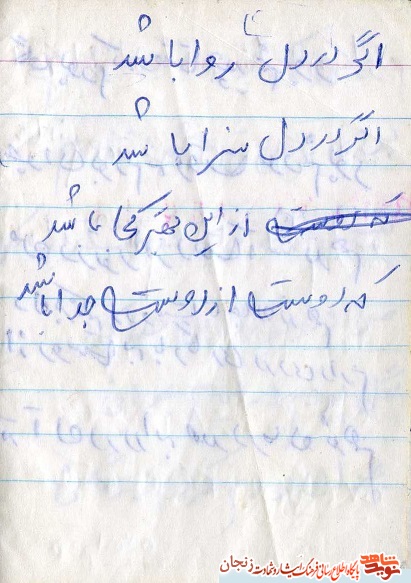 اگر درد دل روا باشد
اگر درد دل سزا باشد
از این بهتر کجا باشد
که دوست از دوست جدا باشد
نوید شاهد
پایگاه اطلاع رسانی فرهنگ ایثار و شهادت زنجان